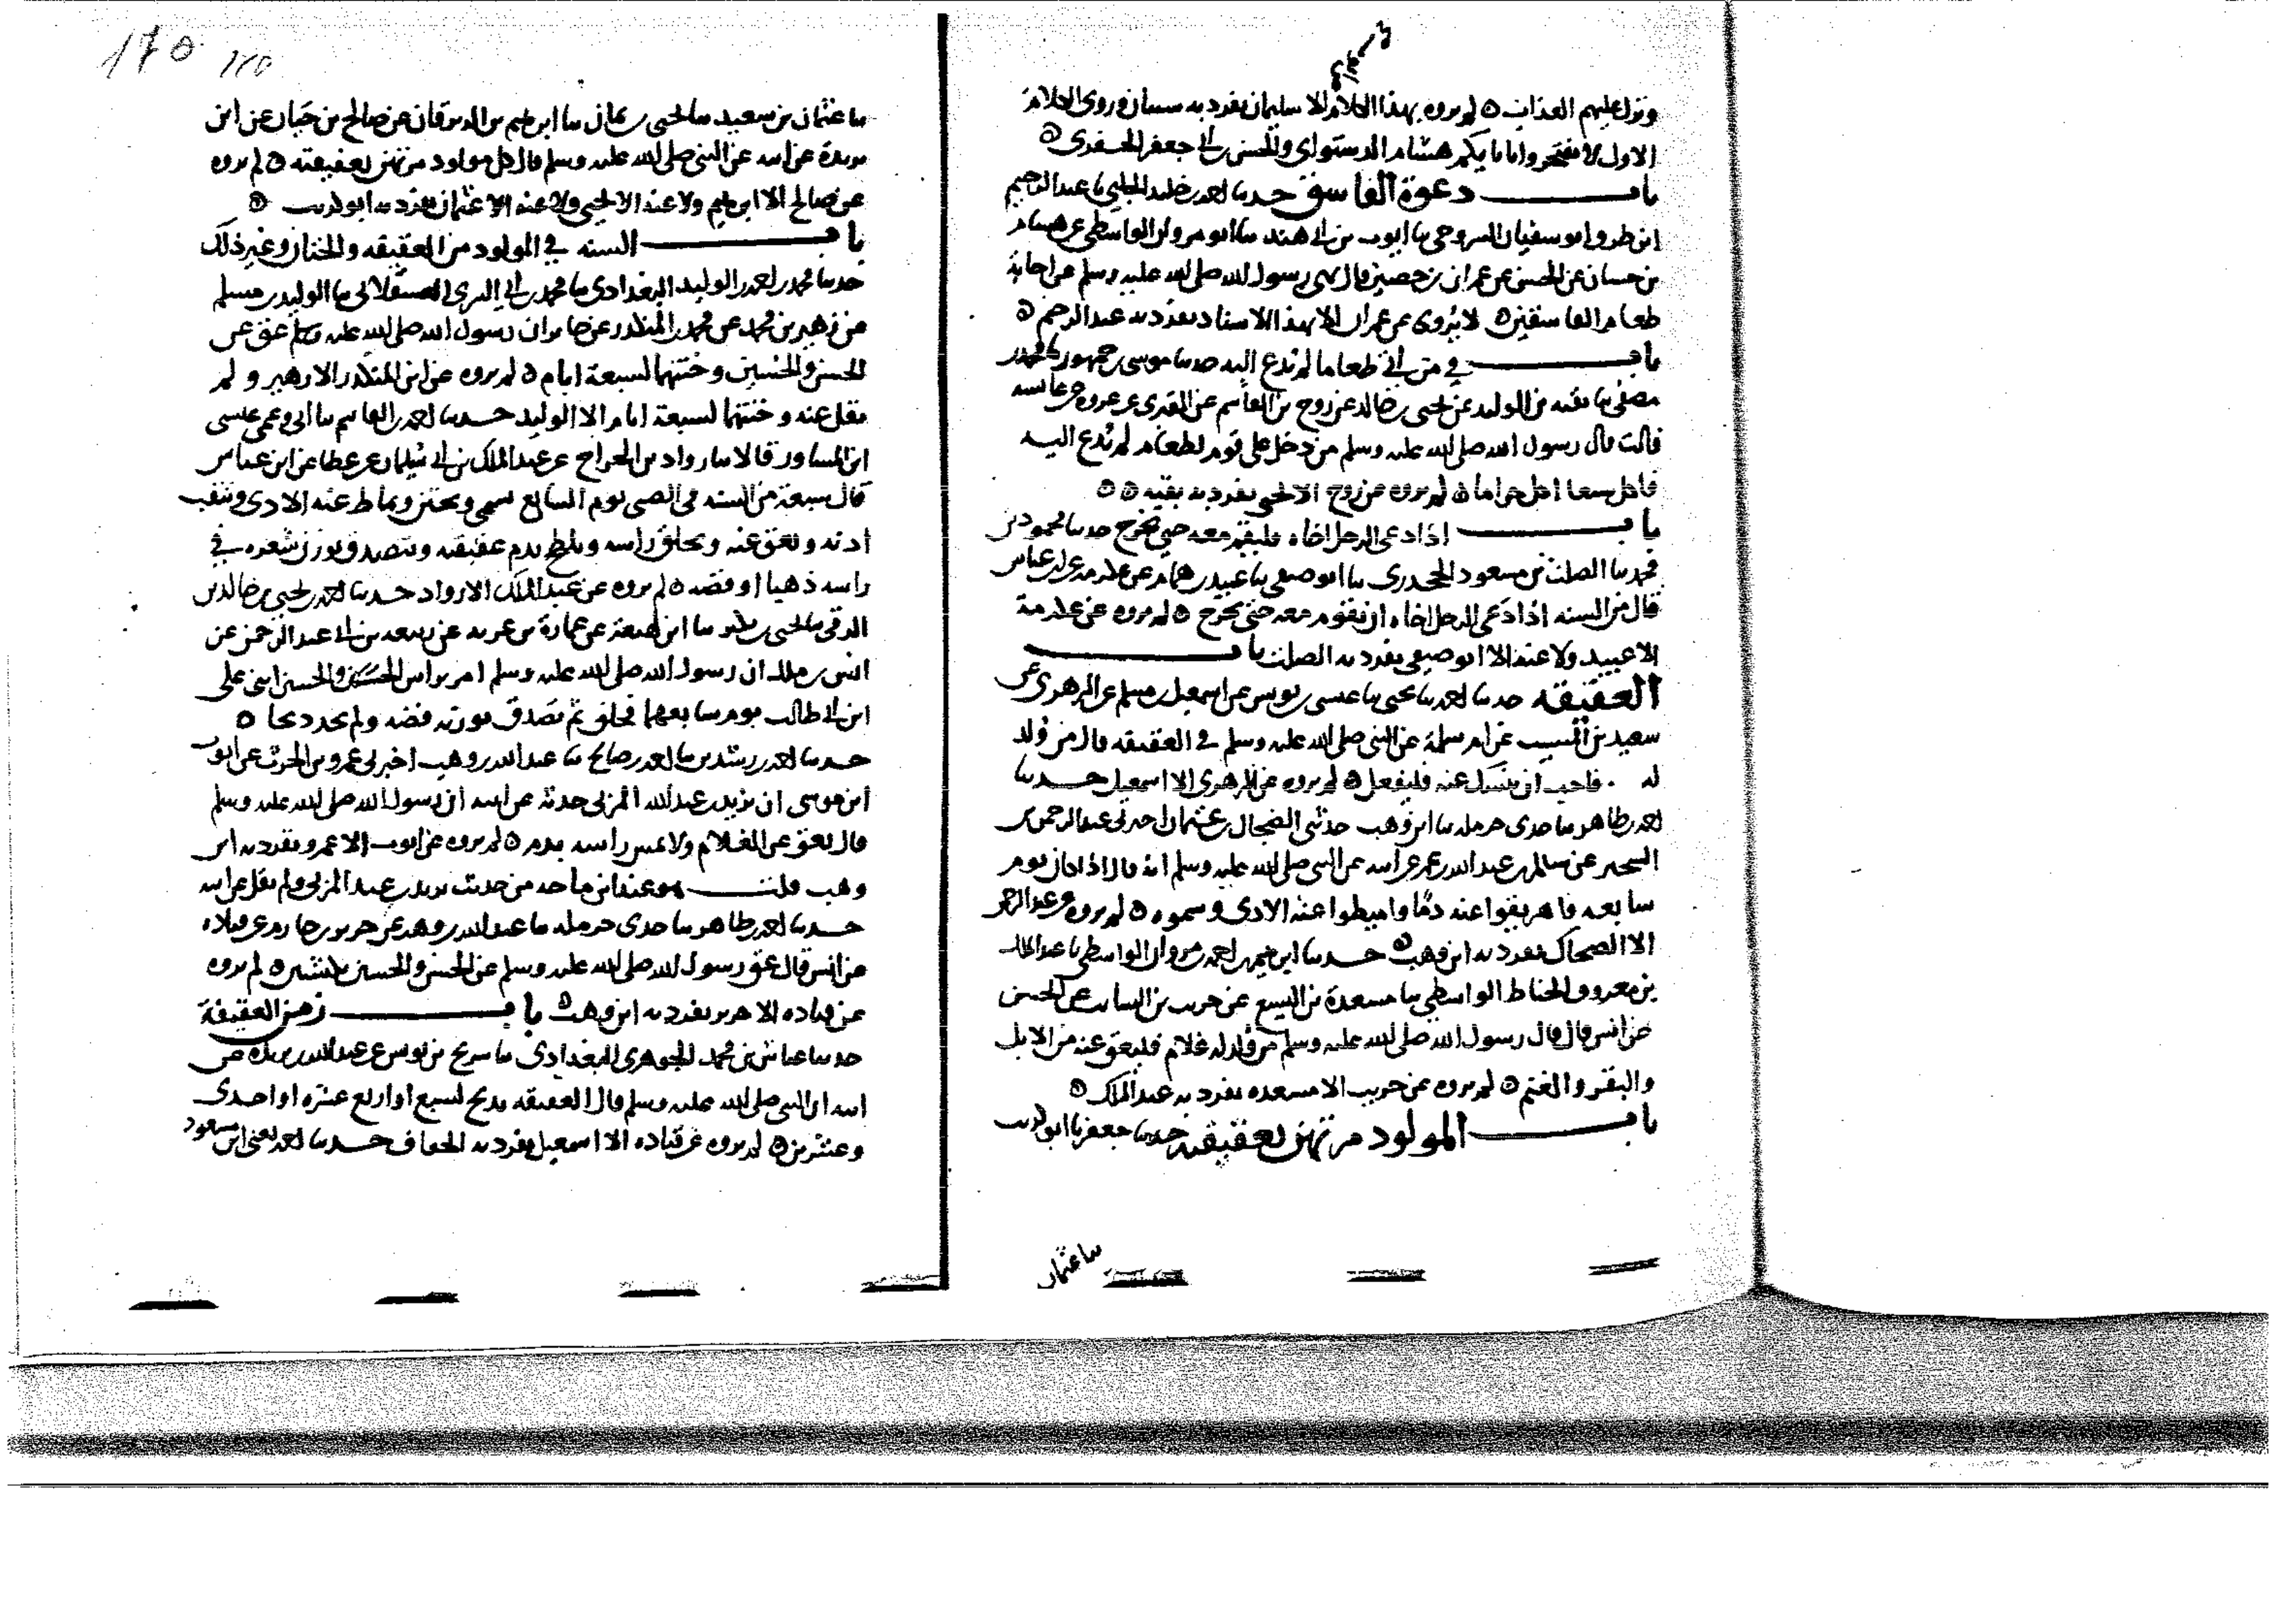 ونزل عليهم العذاب ۞ لم يروه بهذا الكلام الا سليمان تفرد به وروى الكلام
الاول لا تفتخروا بابائكم هشام الدستواى والحسن بن ابى جعفر الجفرى ۞
باب دعوة الفاسق حدثنا احمد بن خليد الحلبى نا عبد الرحيم
ابن مطرف ابو سفيان السروجى نا ايوب بن ابى هند نا ابو مروان الواسطى عن هشام
بن حسان عن الحسن عن عمران بن حصين قال نهى رسول الله صلى الله عليه وسلم عن اجابة
طعام الفاسقين ۞ لا يروى عن عمران الا بهذا الاسناد تفرد به عبد الرحيم ۞
باب فى من اتى طعاما لم يدع اليه حدثنا موسى بن جمهور نا محمد بن
مصفى نا بقيه بن الوليد عن يحيى بن خالد عن روح بن القاسم عن المقبرى عن عروه عن عائشه
قالت قال رسول الله صلى الله عليه وسلم من دخل على قوم لطعام لم يدع اليه
فاكل اكل حراما ۞ لم يروه عن روح الا يحيى تفرد به بقيه ۞ ۞
باب اذا دعى الرجل اخاه فليقم معه حتى يخرج حدثنا محمود بن
محمد نا الصلت بن مسعود الجحدرى نا ابو صيفى نا عبيد بن همام عن عكرمه عن ابن عباس
قال من السنه اذا دعى الرجل اخاه ان يقوم معه حتى يخرج ۞ لم يروه عن عكرمة
الا عبيد ولا عنه الا ابو صيفى تفرد به الصلت باب
العقيقه حدثنا احمد نا يحيى نا عيسى بن يونس عن اسمعيل بن مسلم عن الزهرى عن
سعيد بن المسيب عن ام سلمة عن النبى صلى الله عليه وسلم فى العقيقه قال من ولد
له فاحب ان ينسك عنه فليفعل ۞ لم يروه عن الزهرى الا اسمعيل حدثنا
احمد بن طاهر نا جدى حرمله نا ابن وهب حدثنى الضحاك بن عثمان اخبرنى عبد الرحمن بن
المجبر عن سالم بن عبد الله بن عمر عن ابيه عن النبى صلى الله عليه وسلم انه قال اذا كان يوم
سابعه فاهريقوا عنه دما واميطوا عنه الاذى وسموه ۞ لم يروه عن عبد الرحمن
الا الضحاك تفرد به ابن وهب ۞ حدثنا ابرهيم بن احمد بن مروان الواسطى نا عبد الملك
بن معروف الخناط الواسطى نا مسعدة بن اليسع عن حريث بن السايب عن الحسن
عن انس قال قال رسول الله صلى الله عليه وسلم من ولد له غلام فليعق عنه من الابل
والبقر والغنم ۞ لم يروه عن حريث الا مسعده تفرد به عبد الملك ۞
باب المولود مرتهن بعقيقته حدثنا جعفر نا ابو كريب
نا عثمان
نا عثمان بن سعيد نا يحيى بن يمان نا ابرهيم بن الزبرقان عن صالح بن حيان عن ابن
بريدة عن ابيه عن النبى صلى الله عليه وسلم قال كل مولود مرتهن بعقيقته ۞ لم يروه
عن صالح الا ابرهيم ولا عنه الا يحيى ولا عنه الا عثمان تفرد به ابو كريب ۞
باب السنه فى المولود من العقيقه والختان وغير ذلك
حدثنا محمد بن احمد بن الوليد البغدادى نا محمد بن ابى السرى العسقلانى نا الوليد بن مسلم
عن زهير بن محمد عن محمد بن المنكدر عن جابر ان رسول الله صلى الله عليه وسلم عق عن
الحسن والحسين وختنهما لسبعة ايام ۞ لم يروه عن ابن المنكدر الا زهير ولم
يقل عنه وختنهما لسبعة ايام الا الوليد حدثنا احمد بن القاسم نا ابى وعمى عيسى
ابن المساور قالا نا رواد بن الجراح عن عبد الملك بن ابى سليمان عن عطا عن ابن عباس
قال سبعة من السنه فى الصبى يوم السابع يسمى ويختن ويماط عنه الاذى وتثقب
اذنه ويعق عنه ويحلق راسه ويلطخ بدم عقيقته ويتصدق بوزن شعره فى
راسه ذهبا او فضه ۞ لم يروه عن عبد الملك الا رواد حدثنا احمد بن يحيى بن خالد بن
الرقى نا يحيى بن بكير نا ابن لهيعة عن عمارة بن غزيه عن ربيعه بن ابى عبد الرحمن عن
انس بن ملك ان رسول الله صلى الله عليه وسلم امر براس الحسن والحسين ابنى على
ابن ابى طالب يوم سابعهما فحلق ثم تصدق بوزنه فضه ولم يجد ذبحا ۞
حدثنا احمد بن رشدين نا احمد بن صالح نا عبد الله بن وهب اخبرنى عمرو بن الحرث عن ايوب
ابن موسى ان يزيد بن عبد الله المزنى حدثه عن ابيه ان رسول الله صلى الله عليه وسلم
قال يعق عن الغلام ولا يمس راسه بدم ۞ لم يروه عن ايوب الا عمرو تفرد به ابن
وهب قلت هو عند ابن ماجه من حديث يزيد بن عبد المزنى ولم يقل عن ابيه
حدثنا احمد بن طاهر نا جدى حرمله نا عبد الله بن وهب عن جرير بن حازم عن قتاده
عن انس قال عق رسول الله صلى الله عليه وسلم عن الحسن والحسين بكبشين ۞ لم يروه
عن قتاده الا جرير تفرد به ابن وهب ۞ باب زمن العقيقة
حدثنا عباس بن محمد الجوهرى البغدادى نا سريج بن يونس عن عبد الله بن بريده عن
ابيه ان النبى صلى الله عليه وسلم قال العقيقه تذبح لسبع او اربع عشره او احدى
وعشرين ۞ لم يروه عن قتاده الا اسمعيل تفرد به الخفاف حدثنا احمد يعنى ابن مسعود